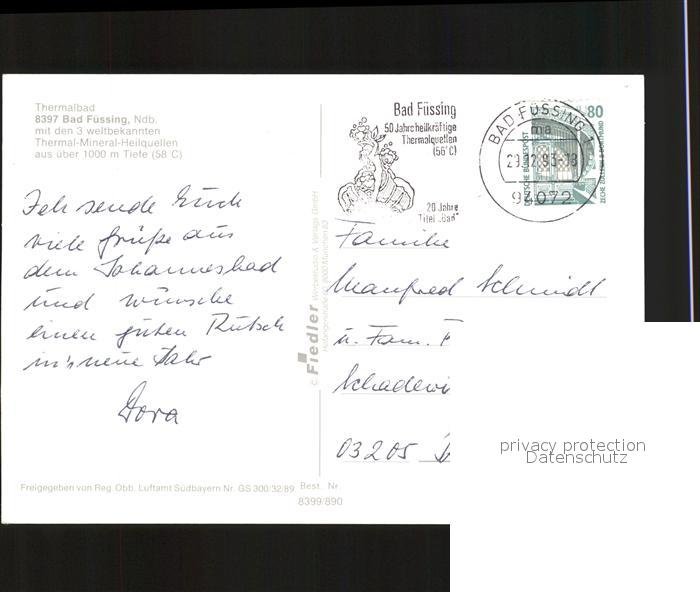 Thermalbad
8397 Bad Füssing, Ndb.
mit den 3 weltbekannten
Thermal-Mineral-Heilquellen
aus über 1000 m Tiefe (58 C)
Ich sende Euch
viele Grüße aus
dem Johannesbad
und wünsche
einen guten Rutsch
in's neue Jahr
Dora
Freigegeben von Reg. Obb. Luftamt Südbayern Nr. GS 300/32/89
Best. Nr.
8399/890
© Fiedler Werbestudio & Verlags GmbH
8000 München 83
Bad Füssing
50 Jahre heilkräftige
Thermalquellen
(56°C)
20 Jahre
Titel "Bad"
BAD FÜSSING 1
ma
94072
80
DEUTSCHE BUNDESPOST
ZECHE ZOLLERN II DORTMUND
Familie
Manfred Schmidt
u. Fam.
03205
privacy protection
Datenschutz